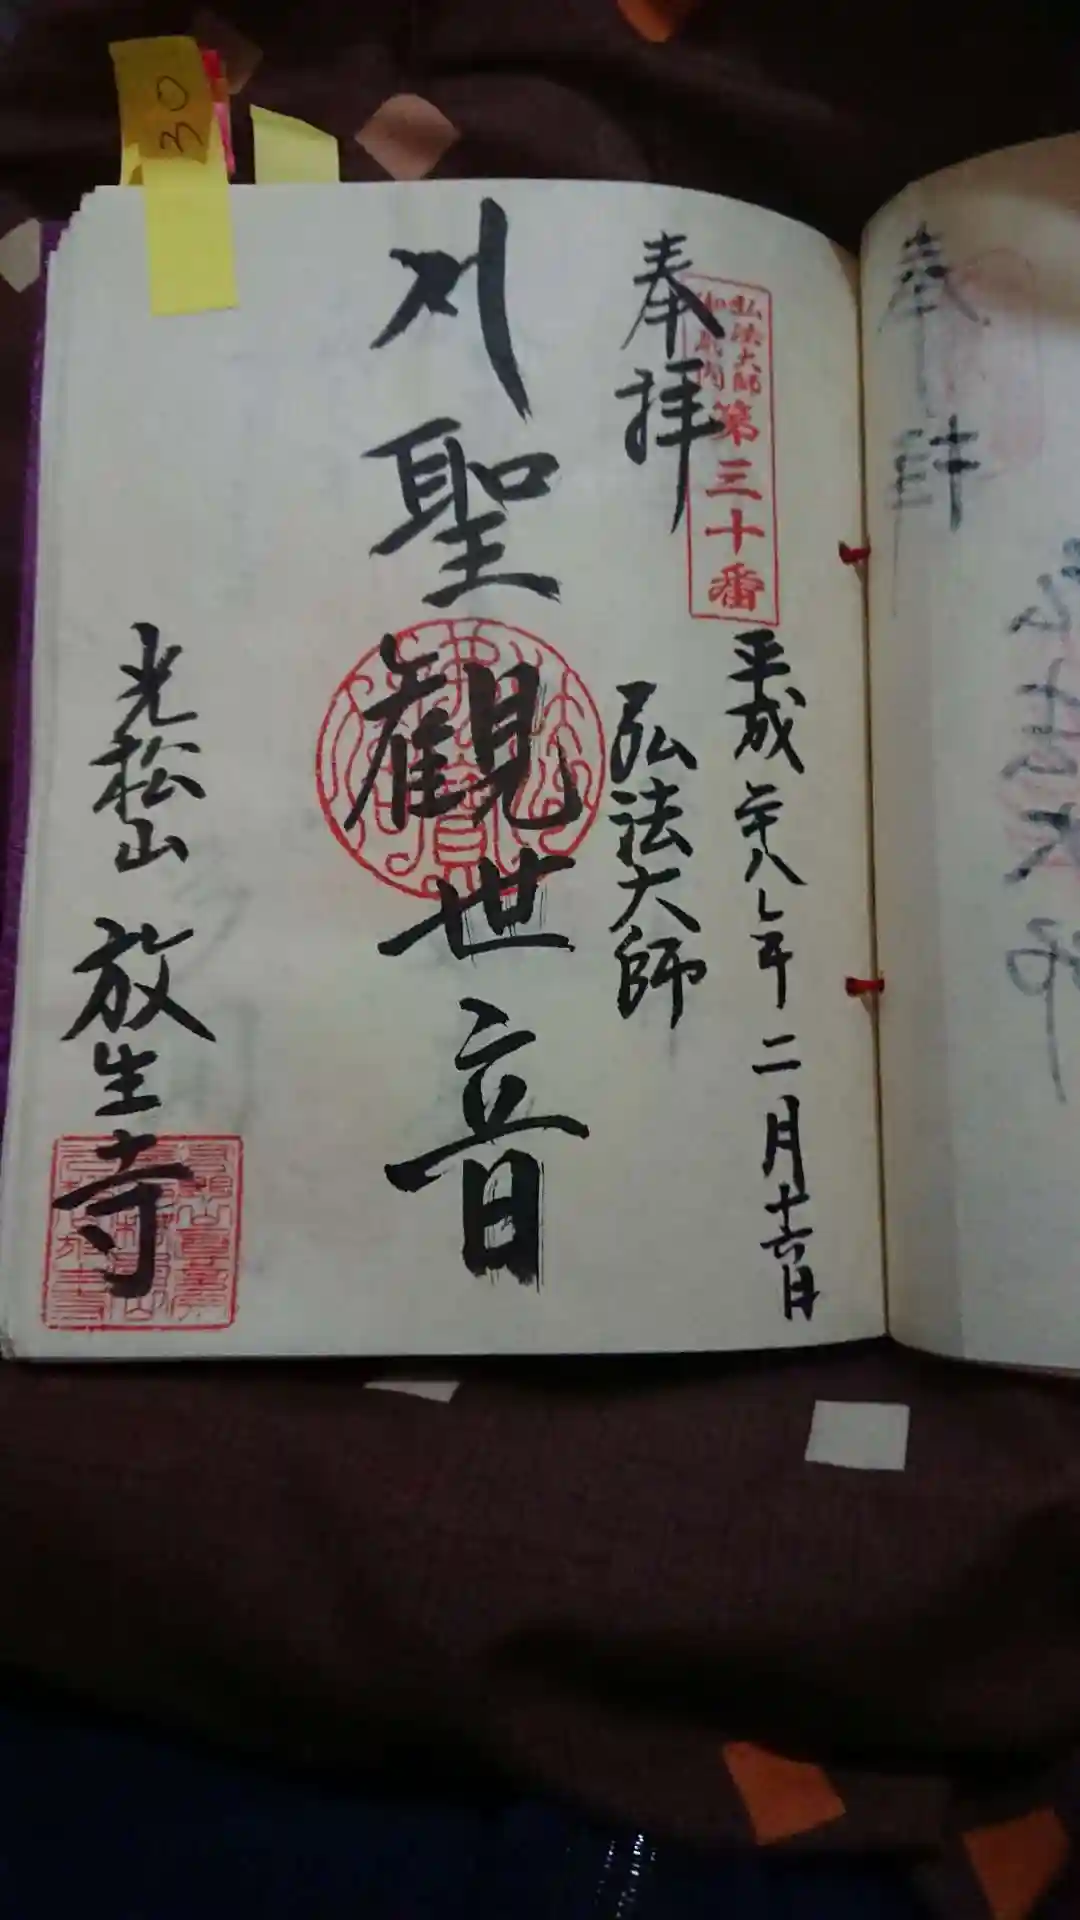 奉拝
弘法大師
30
弘法大師
御府内
第三十番
奉拝
平成廿八年二月十六日
弘法大師
聖観世音
光松山 放生寺